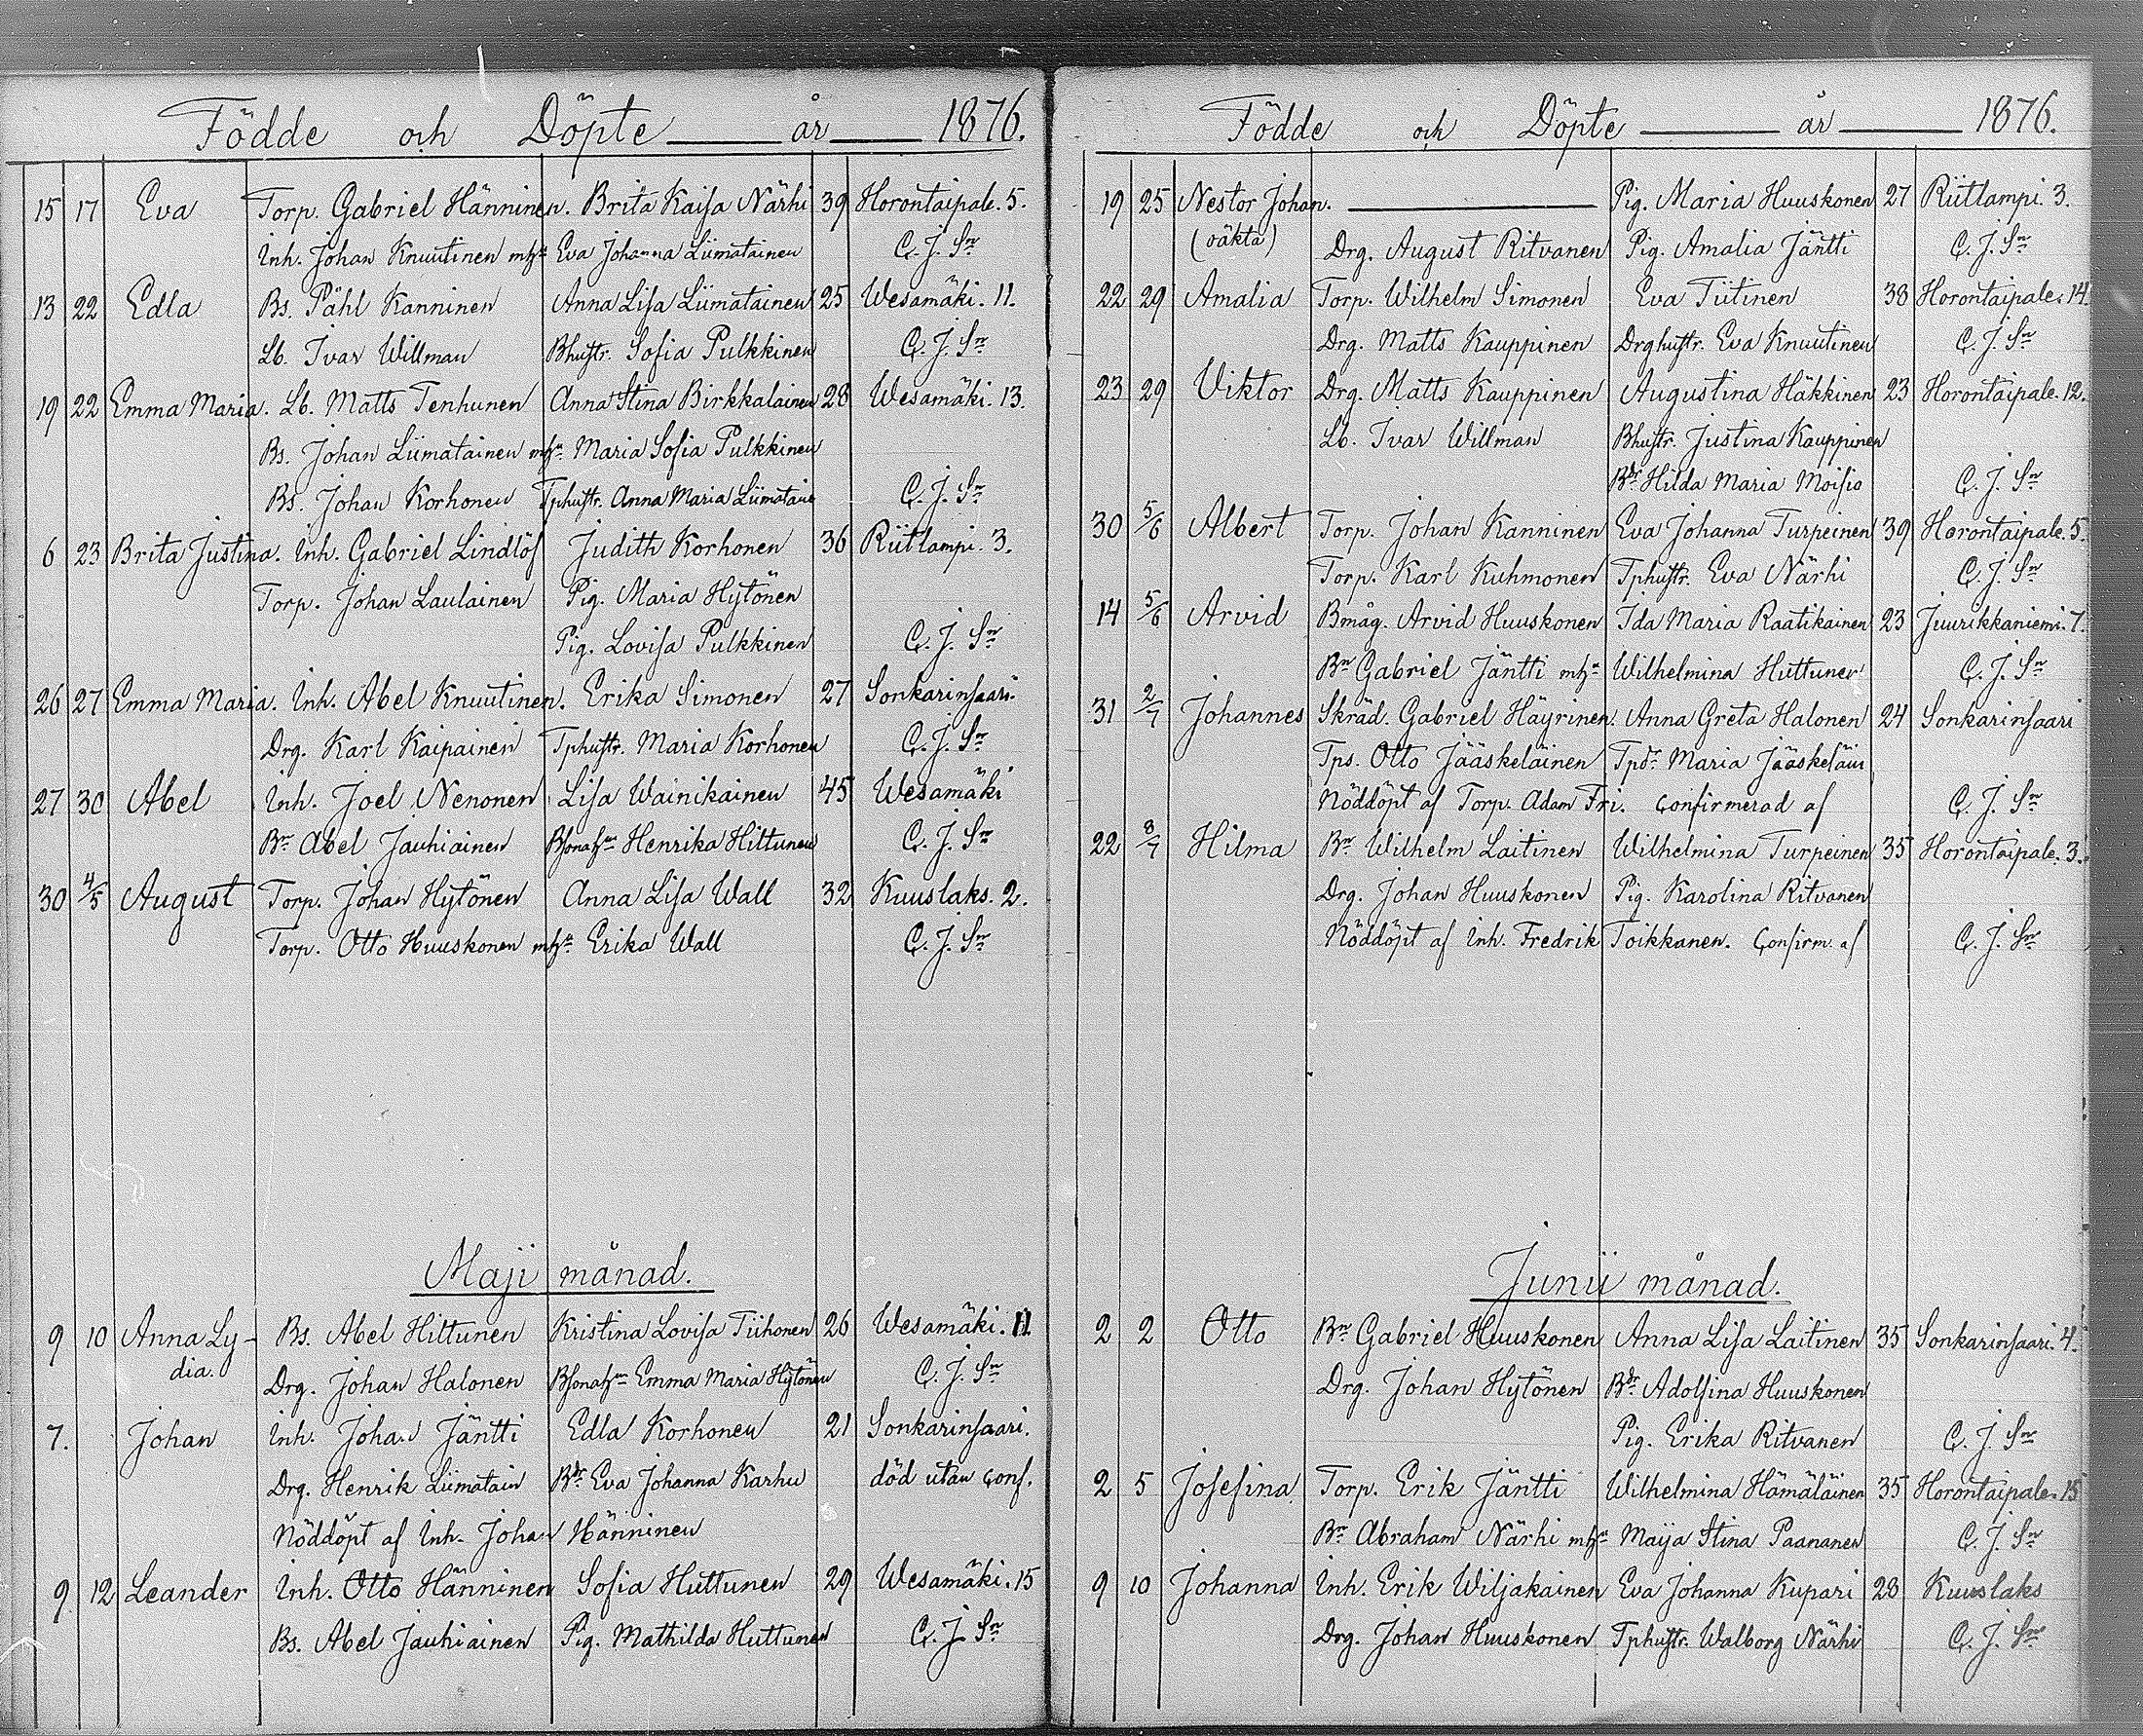 Födde och Döpte år 1876.
15 17 Eva Torp. Gabriel Hänninen. Brita Kaisa Närhi 39 Horontaipale. 5.
Inh. Johan Knuutinen mhn Eva Johanna Liimatainen C. J. Sn
13 22 Edla Bs. Påhl Kanninen Anna Lisa Liimatainen 25 Wesamäki. 11.
Lb. Ivar Willman Bhustr. Sofia Pulkkinen C. J. Sn
19 22 Emma Maria. Lb. Matts Tenhunen Anna Stina Birkkalainen 28 Wesamäki. 13.
Bs. Johan Liimatainen mhn Maria Sofia Pulkkinen
Bs. Johan Korhonen Tphustr. Anna Maria Liimatain C. J. Sn
6 23 Brita Justina. Inh. Gabriel Lindlöf Judith Korhonen 36 Riitlampi. 3.
Torp. Johan Laulainen Pig. Maria Hytönen
Pig. Lovisa Pulkkinen C. J. Sn
26 27 Emma Maria. Inh. Abel Knuutinen. Erika Simonen 27 Sonkarinsaari.
Drg. Karl Kaipainen Tphustr. Maria Korhonen C. J. Sn
27 30 Abel Inh. Joel Nenonen Lisa Wainikainen 45 Wesamäki
Bn Abel Jauhiainen Bsonahn Henrika Hiltunen C. J. Sn
30 4/5 August Torp. Johan Hytönen Anna Lisa Wall 32 Kuuslaks. 2.
Torp. Otto Huuskonen mhn Erika Wall C. J. Sn
Maji månad.
9 10 Anna Ly- Bs. Abel Hiltunen Kristina Lovisa Tiihonen 26 Wesamäki. 11
dia. Drg. Johan Halonen Bsonahn Emma Maria Hytönen C. J. Sn
7. Johan Inh. Johan Jäntti Edla Korhonen 21 Sonkarinsaari.
Drg. Henrik Liimatain Bdr Eva Johanna Karhu död utan conf.
Nöddöpt af Inh. Johan Hänninen
9 12 Leander Inh. Otto Hänninen Sofia Huttunen 29 Wesamäki. 15
Bs. Abel Jauhiainen Pig. Mathilda Huttunen C. J. Sn
Födde och Döpte år 1876.
19 25 Nestor Johan. Pig. Maria Huuskonen 27 Riitlampi. 3.
(oäkta) Drg. August Ritvanen Pig. Amalia Jäntti C. J. Sn
22 29 Amalia Torp. Wilhelm Simonen Eva Tiitinen 38 Horontaipale. 14.
Drg. Matts Kauppinen Drghustr. Eva Knuutinen C. J. Sn
23 29 Viktor Drg. Matts Kauppinen Augustina Häkkinen 23 Horontaipale. 12.
Lb. Ivar Willman Bhustr. Justina Kauppinen
Bdr Hilda Maria Moisio C. J. Sn
30 5/6 Albert Torp. Johan Kanninen Eva Johanna Turpeinen 39 Horontaipale. 5.
Torp. Karl Kuhmonen Tphustr. Eva Närhi C. J. Sn
14 5/6 Arvid Bmåg. Arvid Huuskonen Ida Maria Raatikainen 23 Juurikkaniemi. 7.
Bn Gabriel Jäntti mhn Wilhelmina Huttunen C. J. Sn
31 2/7 Johannes Skräd. Gabriel Häyrinen. Anna Greta Halonen 24 Sonkarinsaari
Tps. Otto Jääskeläinen Tpdr Maria Jääskeläin
Nöddöpt af Torp. Adam Fri. Confirmerad af C. J. Sn
22 8/7 Hilma Bn Wilhelm Laitinen Wilhelmina Turpeinen 35 Horontaipale. 3.
Drg. Johan Huuskonen Pig. Karolina Ritvanen
Nöddöpt af Inh. Fredrik Toikkanen. Confirm. af C. J. Sn
Junii månad.
2 2 Otto Bn Gabriel Huuskonen Anna Lisa Laitinen 35 Sonkarinsaari. 4.
Drg. Johan Hytönen Bdr Adolfina Huuskonen
Pig. Erika Ritvanen C. J. Sn
2 5 Josefina Torp. Erik Jäntti Wilhelmina Hämäläinen 35 Horontaipale. 15
Bn Abraham Närhi mhn Maija Stina Paananen C. J. Sn
9 10 Johanna Inh. Erik Wiljakainen Eva Johanna Kupari 28 Kuuslaks
Drg. Johan Huuskonen Tphustr. Walborg Närhi C. J. Sn